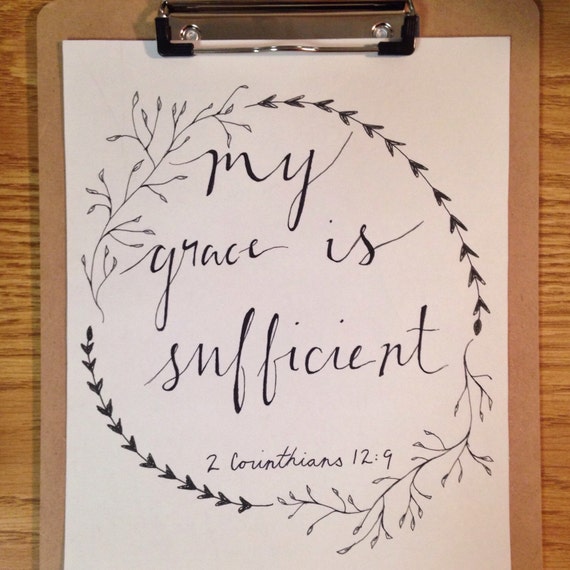 my
grace is
sufficient
2 Corinthians 12:9